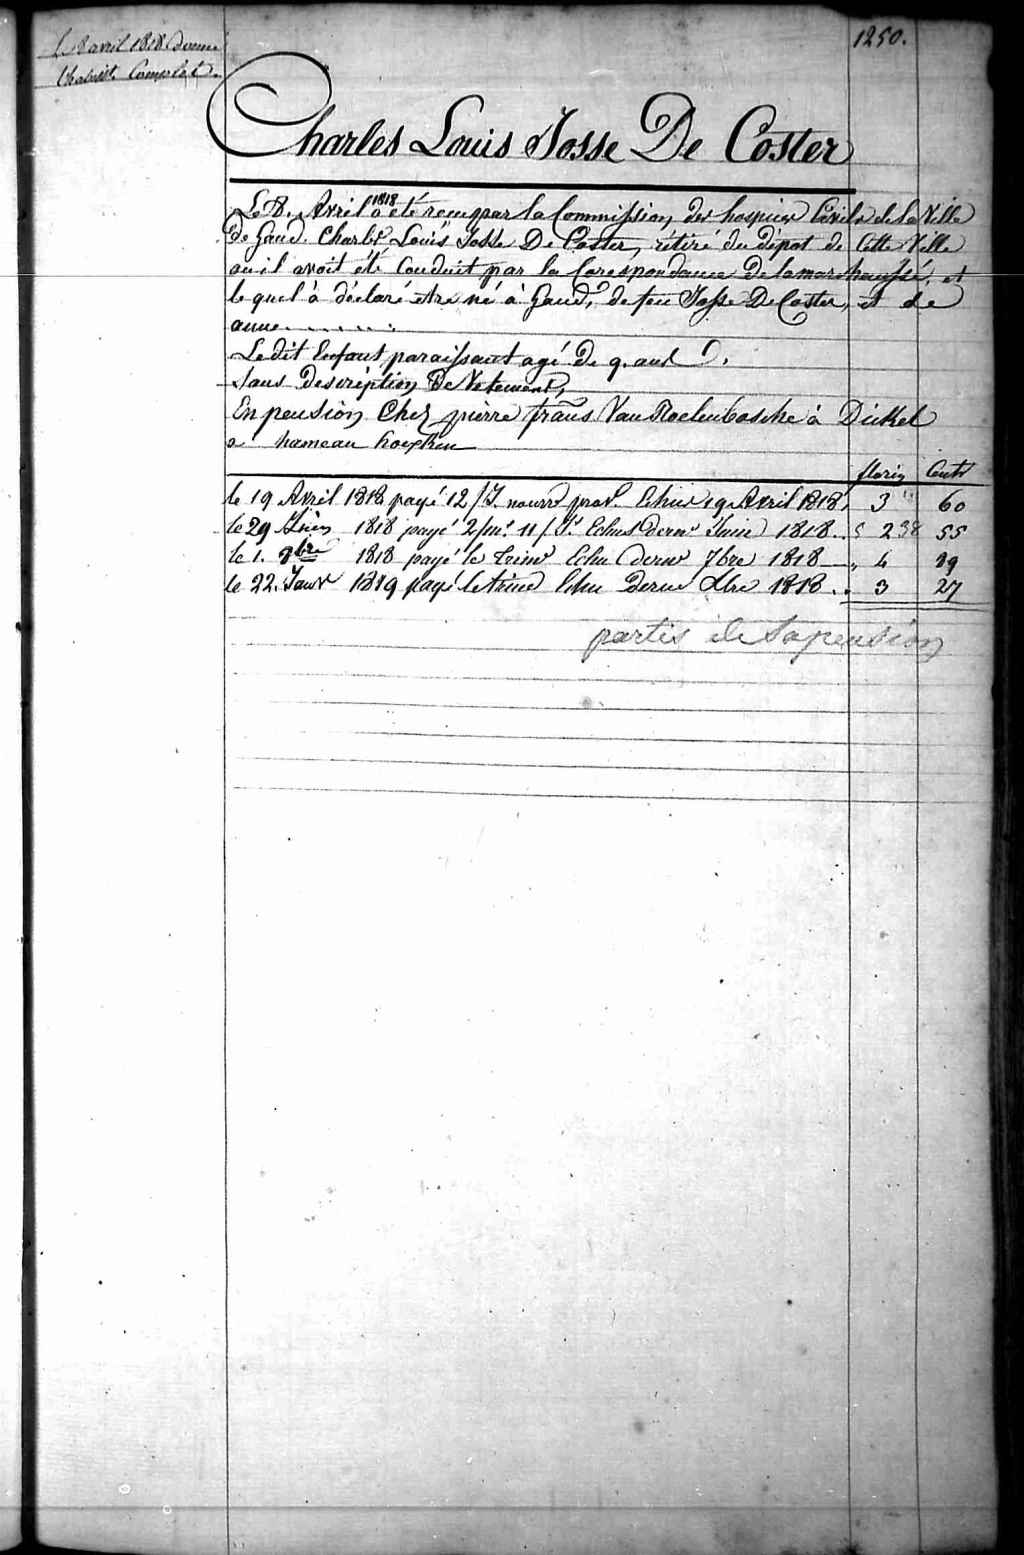 Le 8 avril 1818 donné
l'habillt. Complet.
1250.
Charles Louis Josse De Coster
Le 8. Avril 1818 a été reçu par la Commission des hospices Civils de la Ville
de Gand. Charles Louis Josse De Coster, rétiré du dépot de Cette Ville
ou il avoit été Conduit par la Corespondance de la marechaussé, et
le quel à déclaré etre né à Gand, de feu Josse De Coster, et de
anne . . . . . . .
Le dit Enfant paraissant agé de 9. ans.
Sans Description De Vetement,
En pension Chez pierre frans Van à Dickel
hameau
florin Cents
le 19 Avril 1818 payé 12/J. nourre prov. Echus 19 Avril 1818, 3 60
le 29 Juin 1818 payé 2/m. 11/J. Echus dernr Juin 1818 . 238 55
le 1. 8bre 1818 payé le trimr Echu dernr 7bre 1818 — " 4 39
le 22. Janr 1819 payé le trime Echu Dernr Xbre 1818 . " 3 27
partis de sa pension